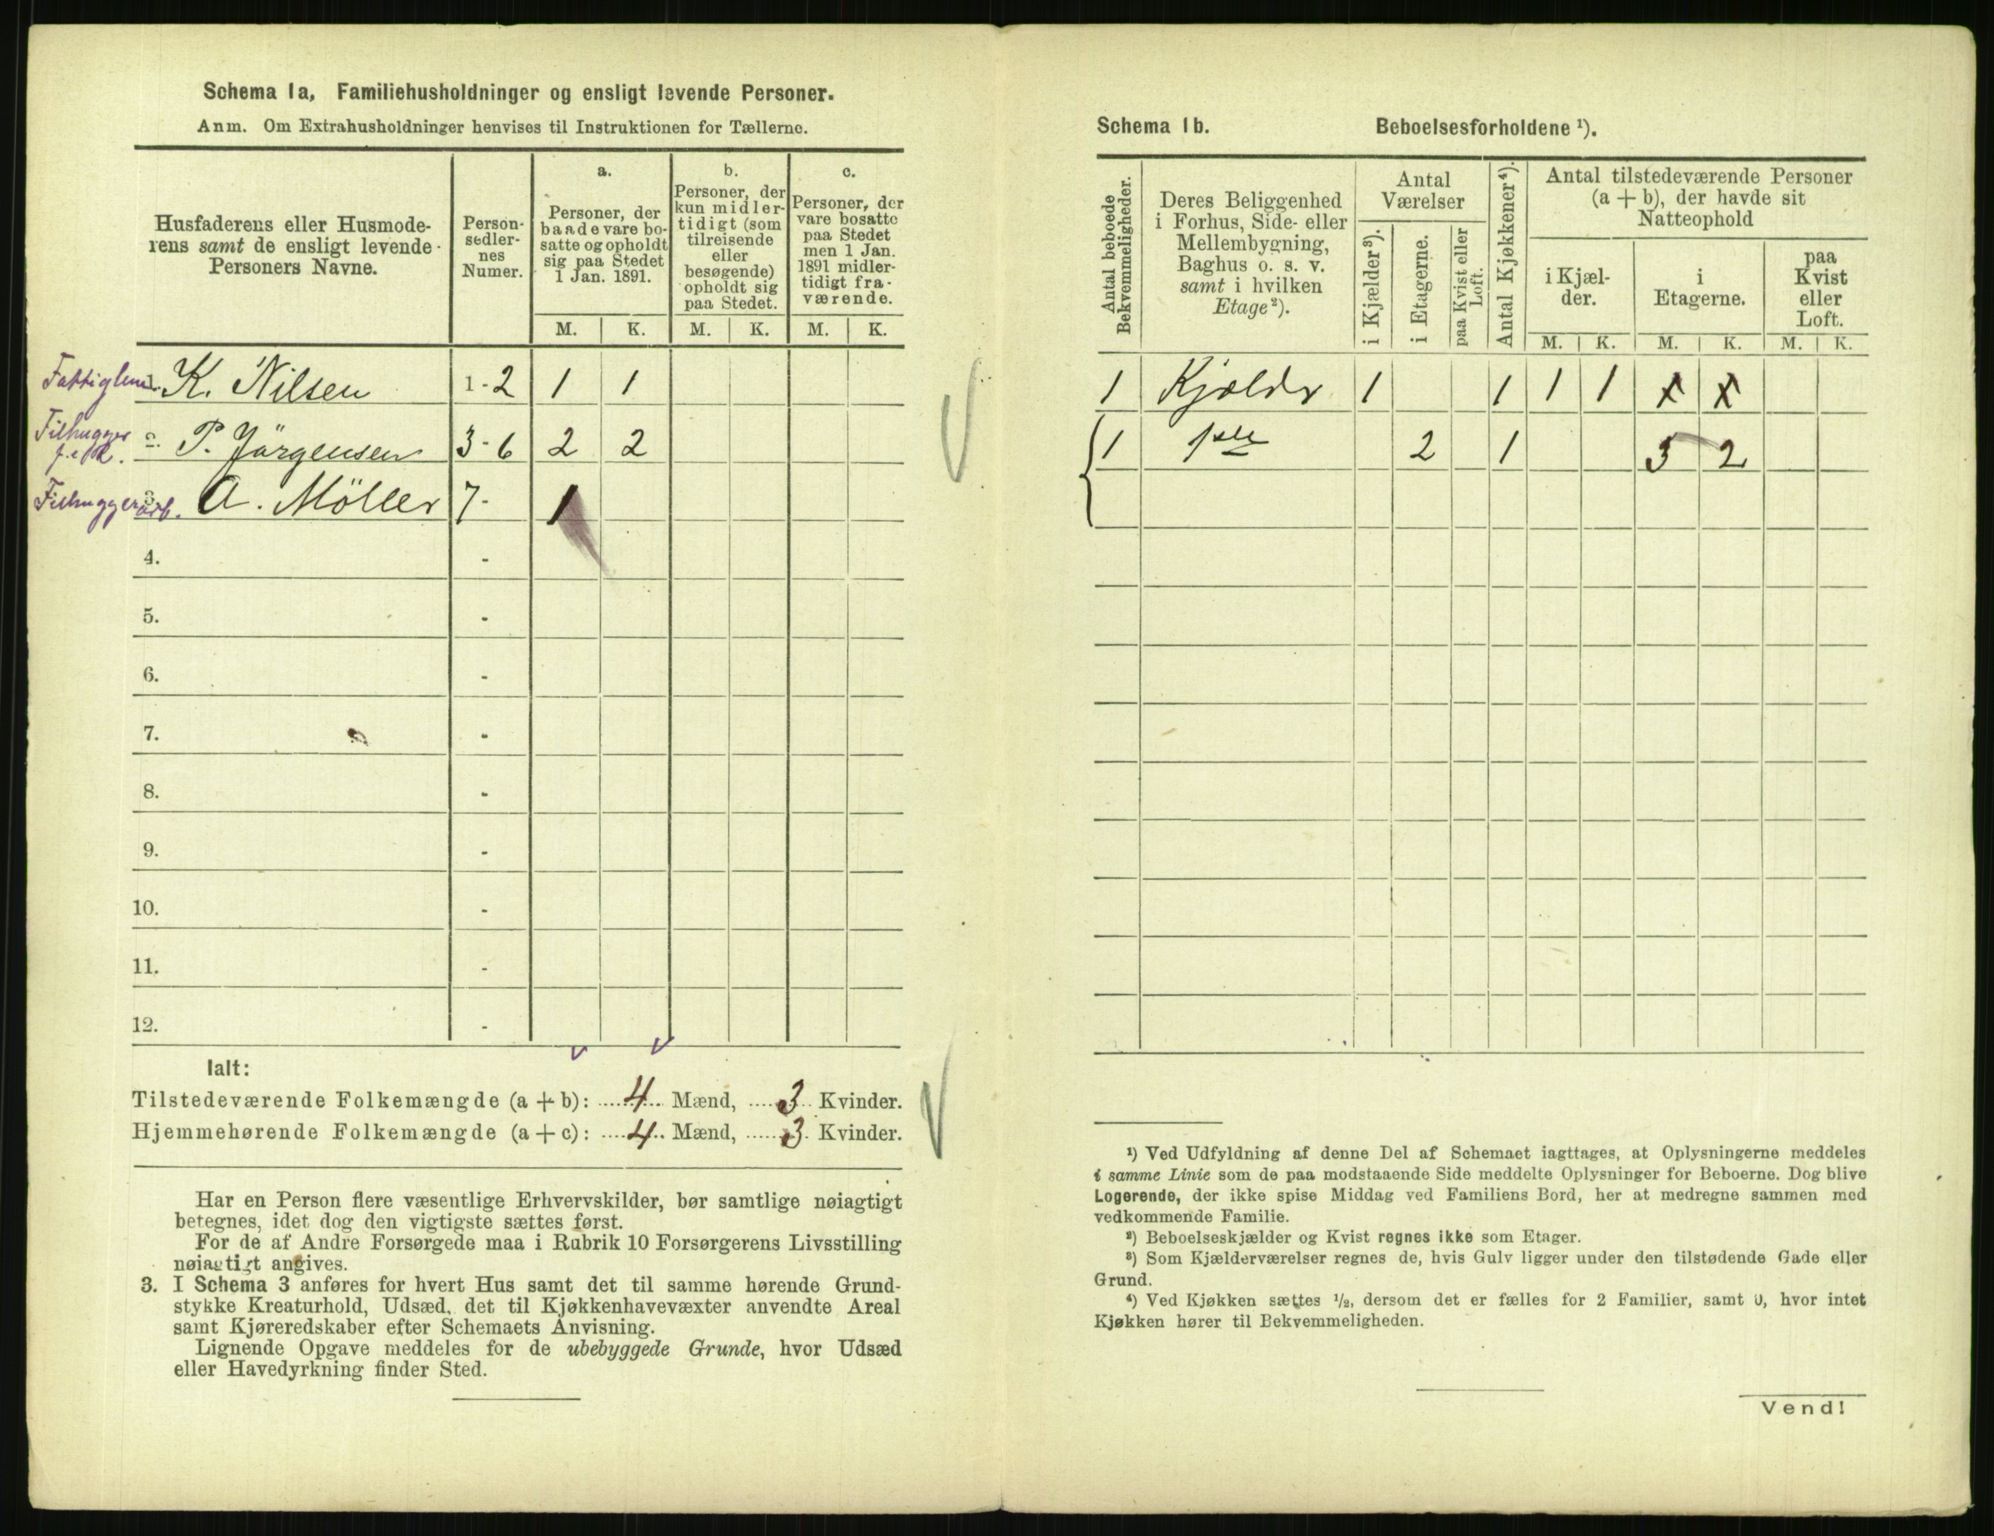 Schema 1a, Familiehusholdninger og ensligt levende Personer.
Anm. Om Extrahusholdninger henvises til Instruktionen for Tællerne.
Husfaderens eller Husmode-
rens samt de ensligt levende
Personers Navne.
Person-
sedler-
nes
Numer.
a.
Personer, der
baade vare bo-
satte og opholdt
sig paa Stedet
1 Jan. 1891.
b.
Personer, der
kun midler-
tidigt (som
tilreisende
eller
besøgende)
opholdt sig
paa Stedet.
c.
Personer, der
vare bosatte
paa Stedet
men 1 Jan.
1891 midler-
tidigt fra-
værende.
M. K. M. K. M. K.
K. Nilsen 1-2 1 1
P. Jörgensen 3-6 2 2
A. Möller 7- 1
4. -
5. -
6. -
7. -
8. -
9. -
10. -
11. -
12. -
Ialt:
Tilstedeværende Folkemængde (a + b): 4 Mænd, 3 Kvinder.
Hjemmehørende Folkemængde (a + c): 4 Mænd, 3 Kvinder.
Har en Person flere væsentlige Erhvervskilder, bør samtlige nøiagtigt
betegnes, idet dog den vigtigste sættes først.
For de af Andre Forsørgede maa i Rubrik 10 Forsørgerens Livsstilling
nøiagtigt angives.
3. I Schema 3 anføres for hvert Hus samt det til samme hørende Grund-
stykke Kreaturhold, Udsæd, det til Kjøkkenhavevæxter anvendte Areal
samt Kjøreredskaber efter Schemaets Anvisning.
Lignende Opgave meddeles for de ubebyggede Grunde, hvor Udsæd
eller Havedyrkning finder Sted.
Schema 1b. Beboelsesforholdene ¹).
Antal beboede
Bekvemmeligheder.
Deres Beliggenhed
i Forhus, Side- eller
Mellembygning,
Baghus o. s. v.
samt i hvilken
Etage ²).
Antal
Værelser
i Kjælder ³).
i Etagerne.
paa Kvist eller
Loft.
Antal Kjøkkener ⁴).
Antal tilstedeværende Personer
(a + b), der havde sit
Natteophold
i Kjæl-
der.
i
Etagerne.
paa
Kvist
eller
Loft.
M. K. M. K. M. K.
1 Kjælder 1 1 1 1
1 1ste 2 1 3 2
¹) Ved Udfyldning af denne Del af Schemaet iagttages, at Oplysningerne meddeles
i samme Linie som de paa modstaaende Side meddelte Oplysninger for Beboerne. Dog blive
Logerende, der ikke spise Middag ved Familiens Bord, her at medregne sammen med
vedkommende Familie.
²) Beboelseskjælder og Kvist regnes ikke som Etager.
³) Som Kjælderværelser regnes de, hvis Gulv ligger under den tilstødende Gade eller
Grund.
⁴) Ved Kjøkken sættes ½, dersom det er fælles for 2 Familier, samt 0, hvor intet
Kjøkken hører til Bekvemmeligheden.
Vend!